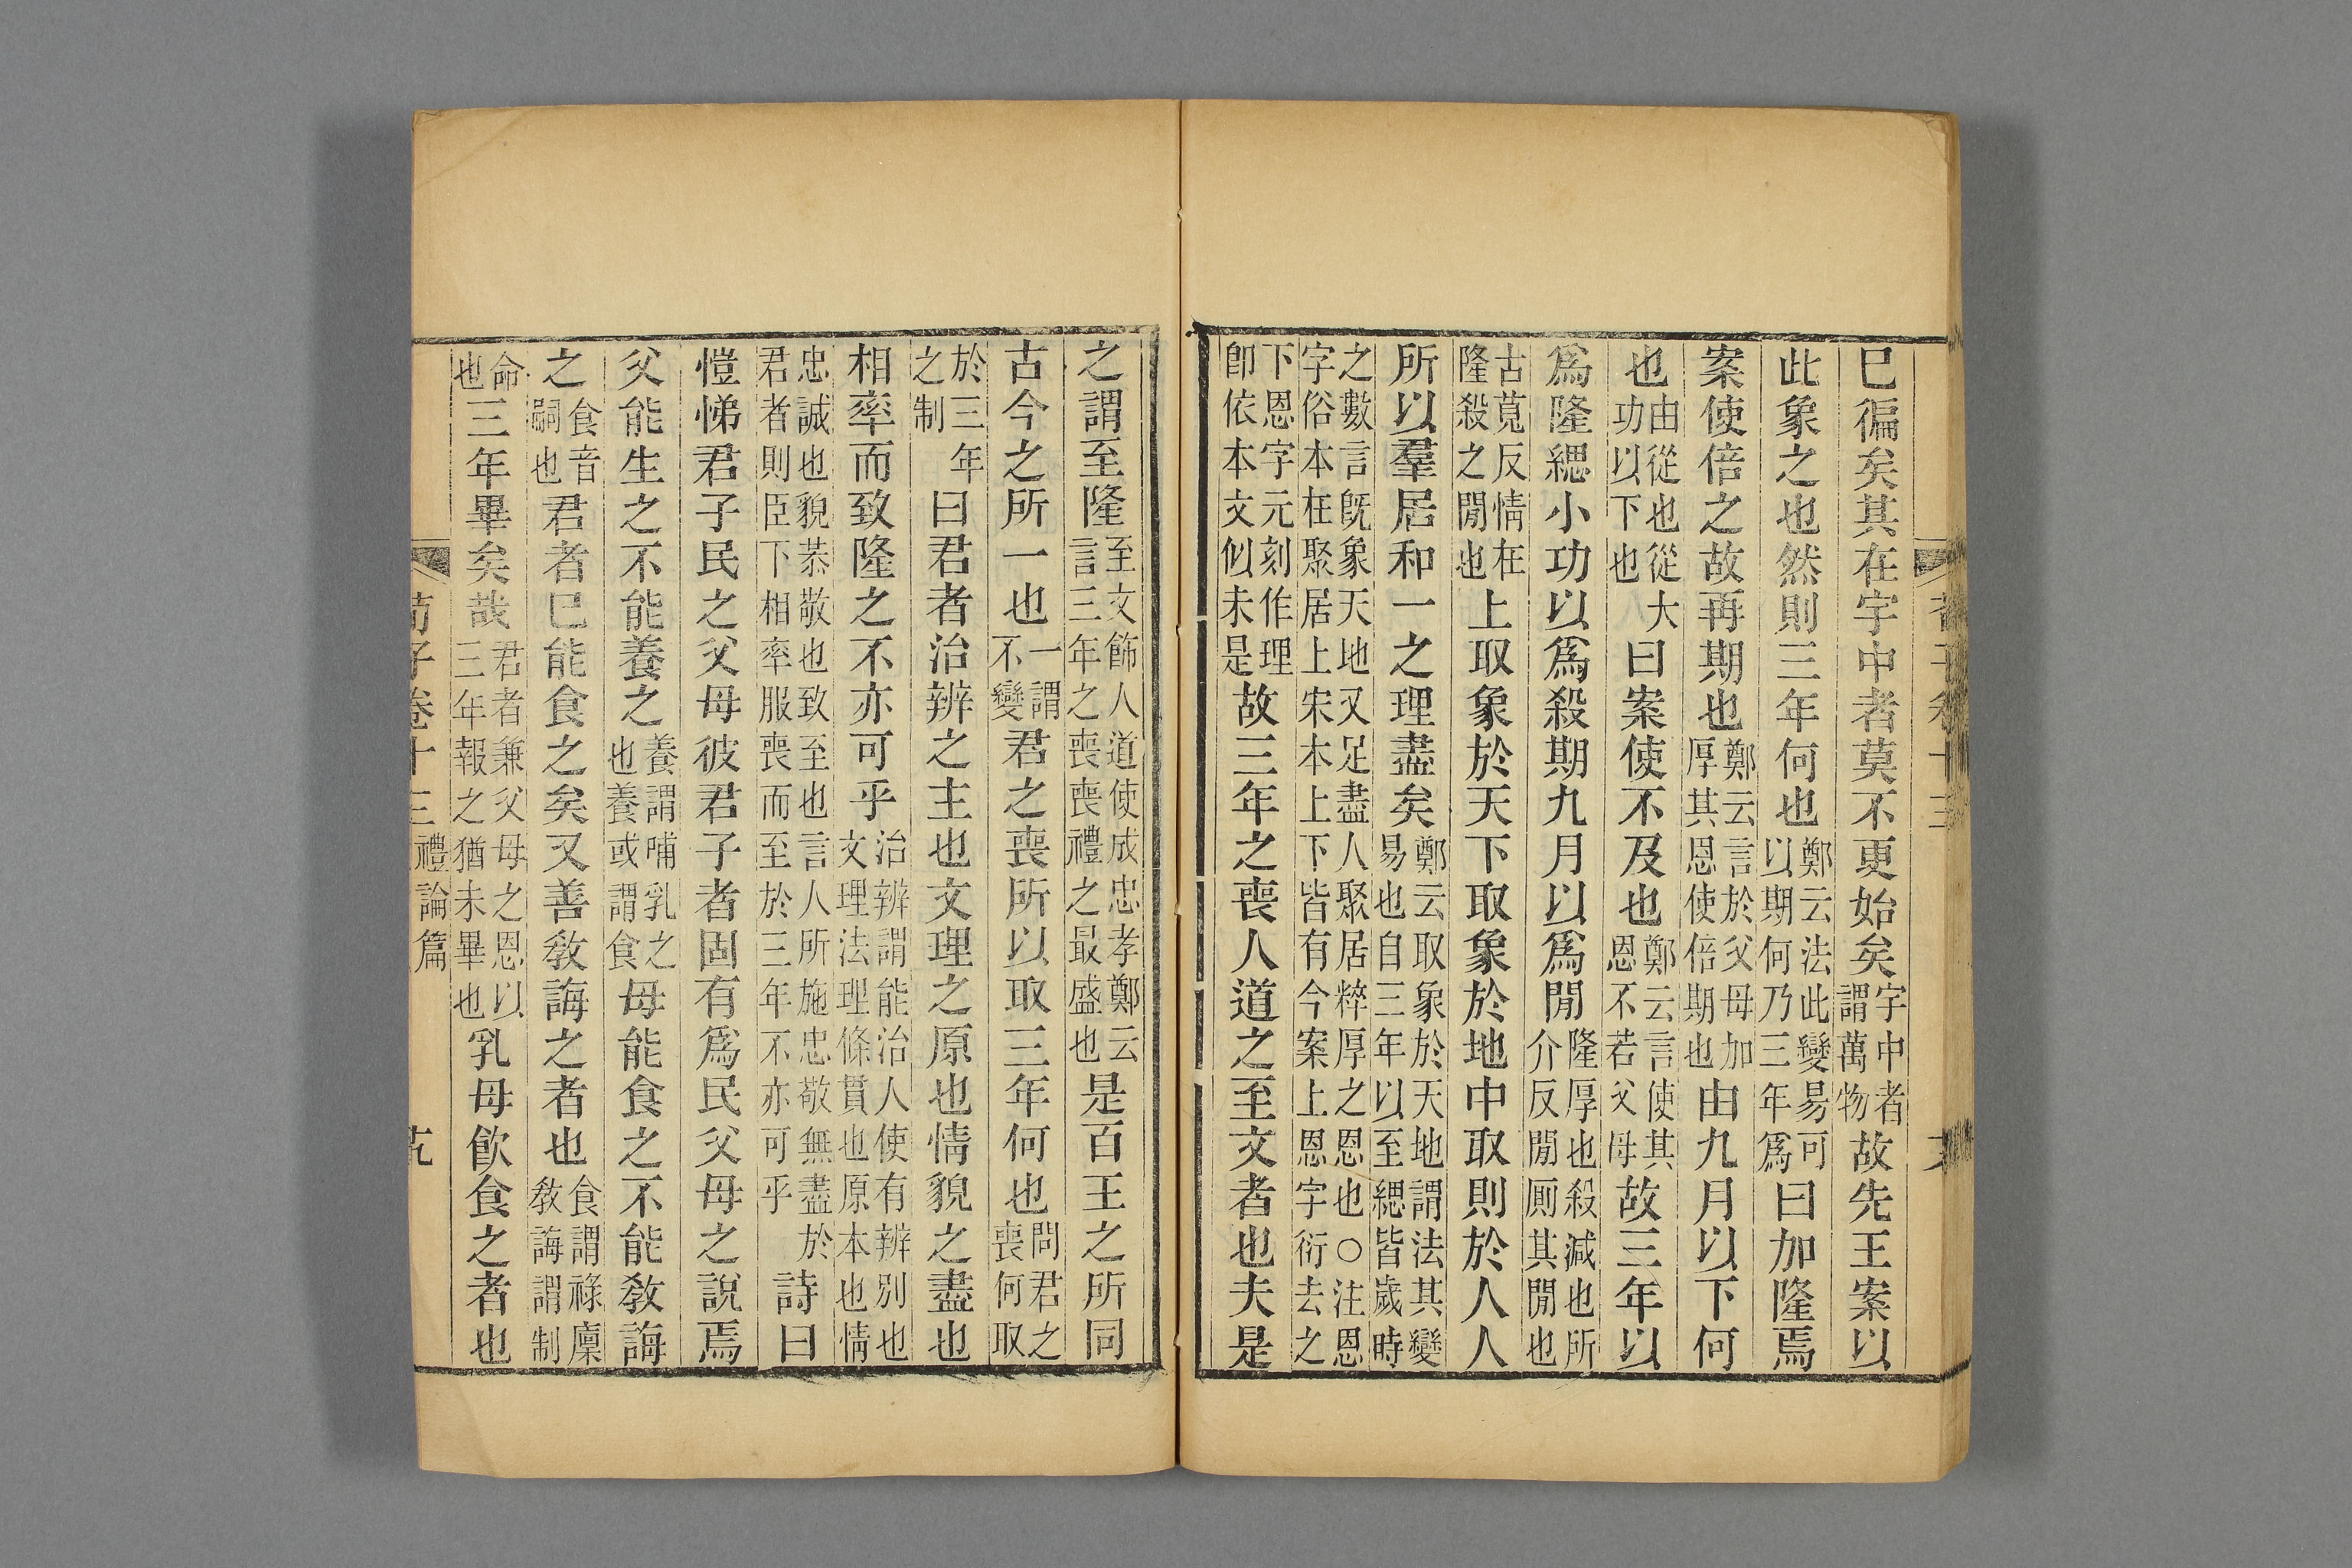 已徧矣其在宇中者莫不更始矣宇中者謂萬物故先王案以
此象之也然則三年何也鄭云法此變易可以期何乃三年爲曰加隆焉
案使倍之故再期也鄭云言於父母加厚其恩使倍期也由九月以下何
也由從也從大功以下也曰案使不及也鄭云言使其恩不若父母故三年以
爲隆緦小功以爲殺期九月以爲閒隆厚也殺減也所介反閒厠其閒也
古莧反情在隆殺之閒也上取象於天下取象於地中取則於人人
所以羣居和一之理盡矣鄭云取象於天地謂法其變易也自三年以至緦皆歲時
之數言旣象天地又足盡人聚居粹厚之恩也○注恩字俗本在聚居上宋本上下皆有今案上恩字衍去之
下恩字元刻作理卽依本文似未是故三年之喪人道之至文者也夫是
之謂至隆至文飾人道使成忠孝鄭云言三年之喪喪禮之最盛也是百王之所同
古今之所一也一謂不變君之喪所以取三年何也問君之喪何取
於三年之制曰君者治辨之主也文理之原也情貌之盡也
相率而致隆之不亦可乎治辨謂能治人使有辨別也文理法理條貫也原本也情
忠誠也貌恭敬也致至也言人所施忠敬無盡於君者則臣下相率服喪而至於三年不亦可乎詩曰
愷悌君子民之父母彼君子者固有爲民父母之說焉
父能生之不能養之養謂哺乳之也養或謂食母能食之不能敎誨
之食音嗣也君者已能食之矣又善敎誨之者也食謂祿廩敎誨謂制
命也三年畢矣哉君者兼父母之恩以三年報之猶未畢也乳母飮食之者也
荀子卷十三 禮論篇